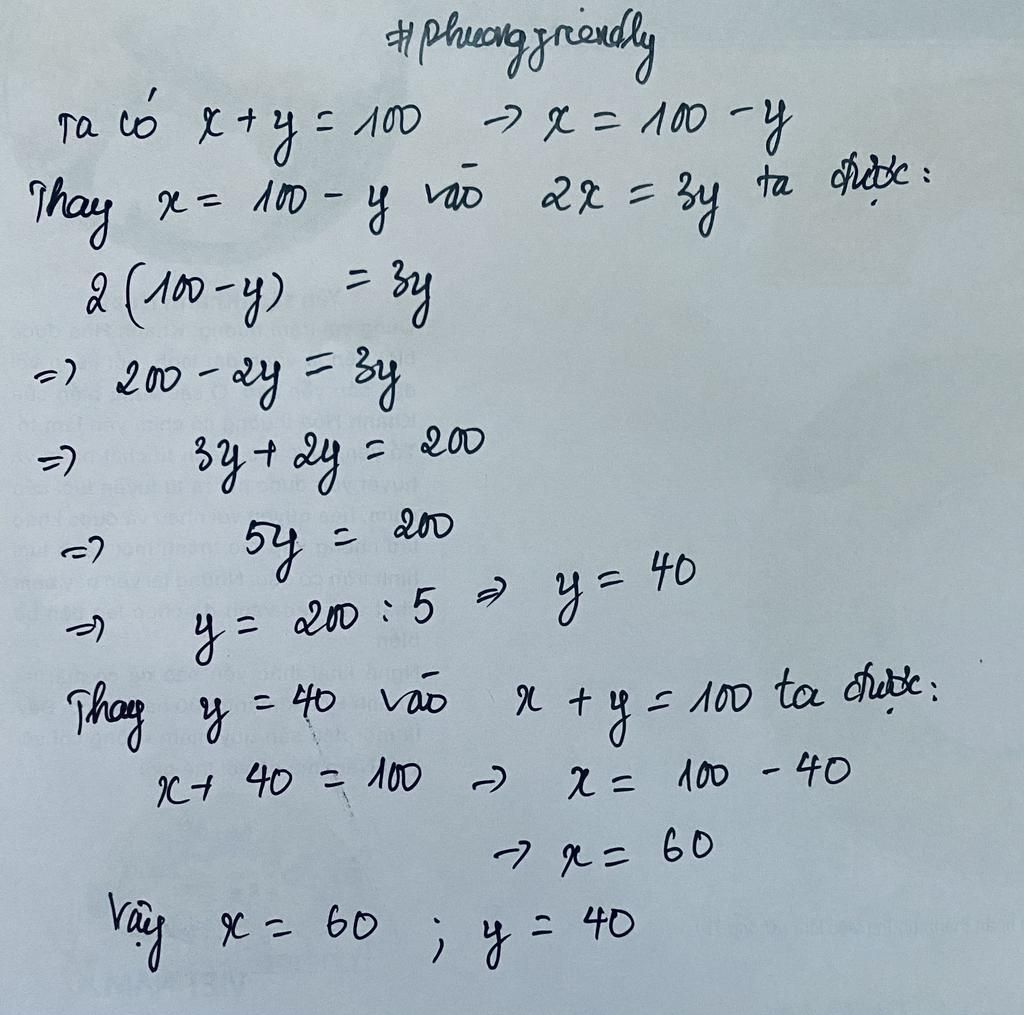 #phuongfriendly
Ta có x + y = 100 → x = 100 - y
Thay x = 100 - y vào 2x = 3y ta được:
2(100-y) = 3y
=> 200 - 2y = 3y
=> 3y + 2y = 200
=> 5y = 200
=> y = 200 : 5 => y = 40
Thay y = 40 vào x + y = 100 ta được:
x + 40 = 100 → x = 100 - 40
→ x = 60
Vậy x = 60 ; y = 40